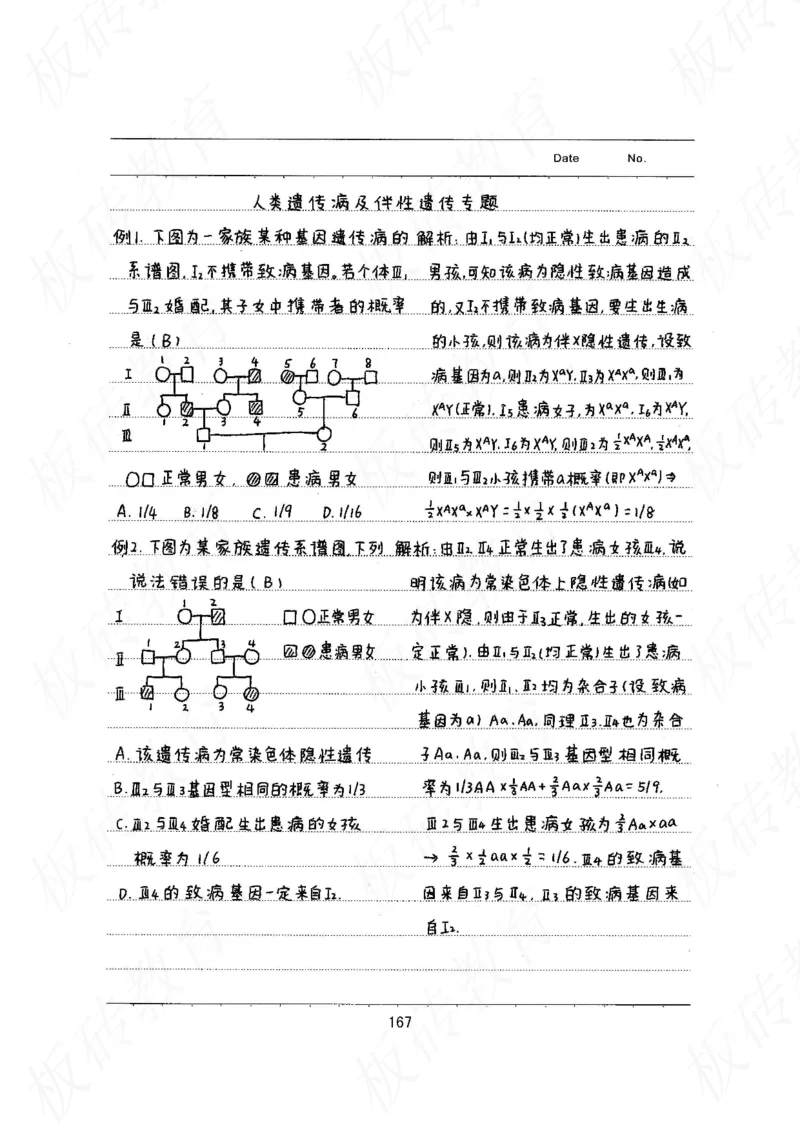 Date No.
人类遗传病及伴性遗传专题
例1. 下图为一家族某种基因遗传病的
系谱图, I₂不携带致病基因。若个体Ⅲ₁
与Ⅲ₂婚配, 其子女中携带者的概率
是(B)
1 2 3 4 5 6 7 8
Ⅰ
Ⅱ 1 2 3 4 5 6
Ⅲ 1 2
○□正常男女, 患病男女
A. 1/4 B. 1/8 C. 1/9 D. 1/16
解析: 由I₁与I₂(均正常)生出患病的Ⅱ₂
男孩, 可知该病为隐性致病基因造成
的, 又I₂不携带致病基因, 要生出生病
的小孩, 则该病为伴X隐性遗传, 设致
病基因为a, 则Ⅱ₂为XᵃY, Ⅱ₃为XᴬXᵃ, 则Ⅲ₁为
XᴬY(正常). I₅患病女子, 为XᵃXᵃ, I₆为XᴬY,
则Ⅱ₅为XᴬXᵃ, Ⅰ₆为XᴬY, 则Ⅲ₂为½XᴬXᴬ, ½XᴬXᵃ,
则Ⅲ₁与Ⅲ₂小孩携带a概率(即XᴬXᵃ)⇒
½XᴬXᵃ×XᴬY=½×½×½(XᴬXᵃ)=1/8
例2. 下图为某家族遗传系谱图, 下列
说法错误的是(B)
1 2
Ⅰ □○正常男女
Ⅱ 1 2 3 4 患病男女
Ⅲ 1 2 3 4
A. 该遗传病为常染色体隐性遗传
B. Ⅲ₂与Ⅱ₃基因型相同的概率为1/3
C. Ⅲ2与Ⅲ4婚配生出患病的女孩
概率为1/6
D. Ⅲ4的致病基因一定来自I₂.
解析: 由Ⅱ₃, Ⅱ₄正常生出了患病女孩Ⅲ₄, 说
明该病为常染色体上隐性遗传病(如
为伴X隐, 则由于Ⅱ₃正常, 生出的女孩一
定正常). 由Ⅱ₁与Ⅱ₂(均正常)生出了患病
小孩Ⅲ₁, 则Ⅱ₁、Ⅱ₂均为杂合子(设致病
基因为a) Aa、Aa, 同理Ⅱ₃、Ⅱ₄也为杂合
子Aa、Aa, 则Ⅲ₂与Ⅲ₃基因型相同概
率为1/3AA×⅓AA+⅔Aa×⅔Aa=5/9.
Ⅲ2与Ⅲ4生出患病女孩为⅔Aa×aa
→⅔×½aa×½=1/6. Ⅲ4的致病基
因来自Ⅱ3与Ⅱ4, Ⅱ3的致病基因来
自I₂.
167
板砖教育